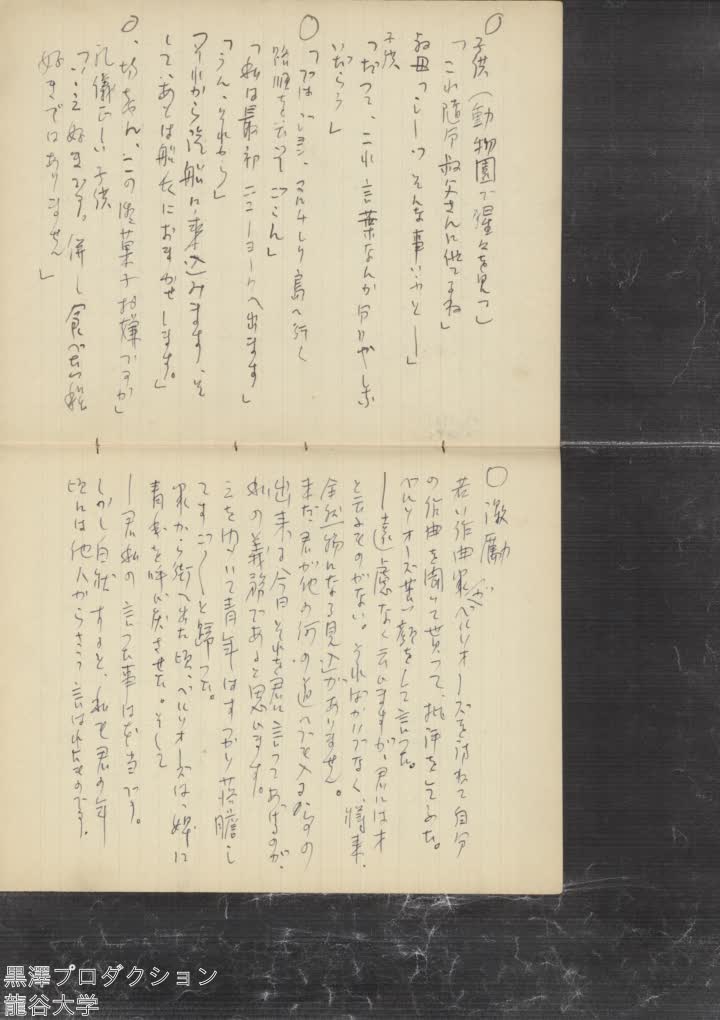 ○ 子供(動物園で猩々を見て)
「これ随分叔父さんに似てるね」
叔母「しーっ そんな事いふと——」
子供
「だって、これ言葉なんか分りやしな
いだらう」
○ 「では 島へ行く
路順を云って ごらん」
「私は最初ニューヨークへ出ます」
「うん、それから」
「それから汽船に乗込みます、そ
して、あとは船長におまかせします。」
○ 坊ちゃん、このお菓子お嫌ですか」
礼儀正しい子供
「いゝえ好きです。併し食べる程
好きではありません」
○ 激励
若い作曲家がベルリオーズを訪ねて自分
の作曲を聞いて貰って、批評をして
ベルリオーズ 顔をして言った。
—遠慮なく云ひますが、君には才
と云ふものがない。そればかりでなく、将来、
全然物になる見込がありません。
まだ君が他の何の道へでも入る
出来る今日それを君に言ってあげるのが、
私の義務であると思ひます。
青年はすっかり落膽し
てすごすごと歸った。
家から街へ出た頃、ベルリオーズは、婢に
青年を呼び戻させた。そして
—君、私の言った事は本当です。
しかし白状すると、私も君の年
頃には他人からさう言はれたものです。
黒澤プロダクション
龍谷大学